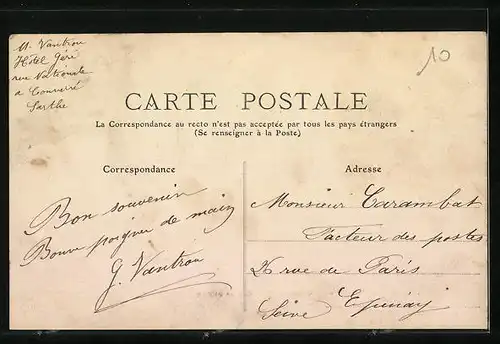 M. Vantrou
Hotel Géré
rue Nationale
a Connerré
Sarthe
10
CARTE POSTALE
La Correspondance au recto n'est pas acceptée par tous les pays étrangers
(Se renseigner à la Poste)
Correspondance
Adresse
Bon souvenir
Bonne poignée de main
G. Vantrou
Monsieur Carambat
Facteur des postes
rue de Paris
Epinay
Seine